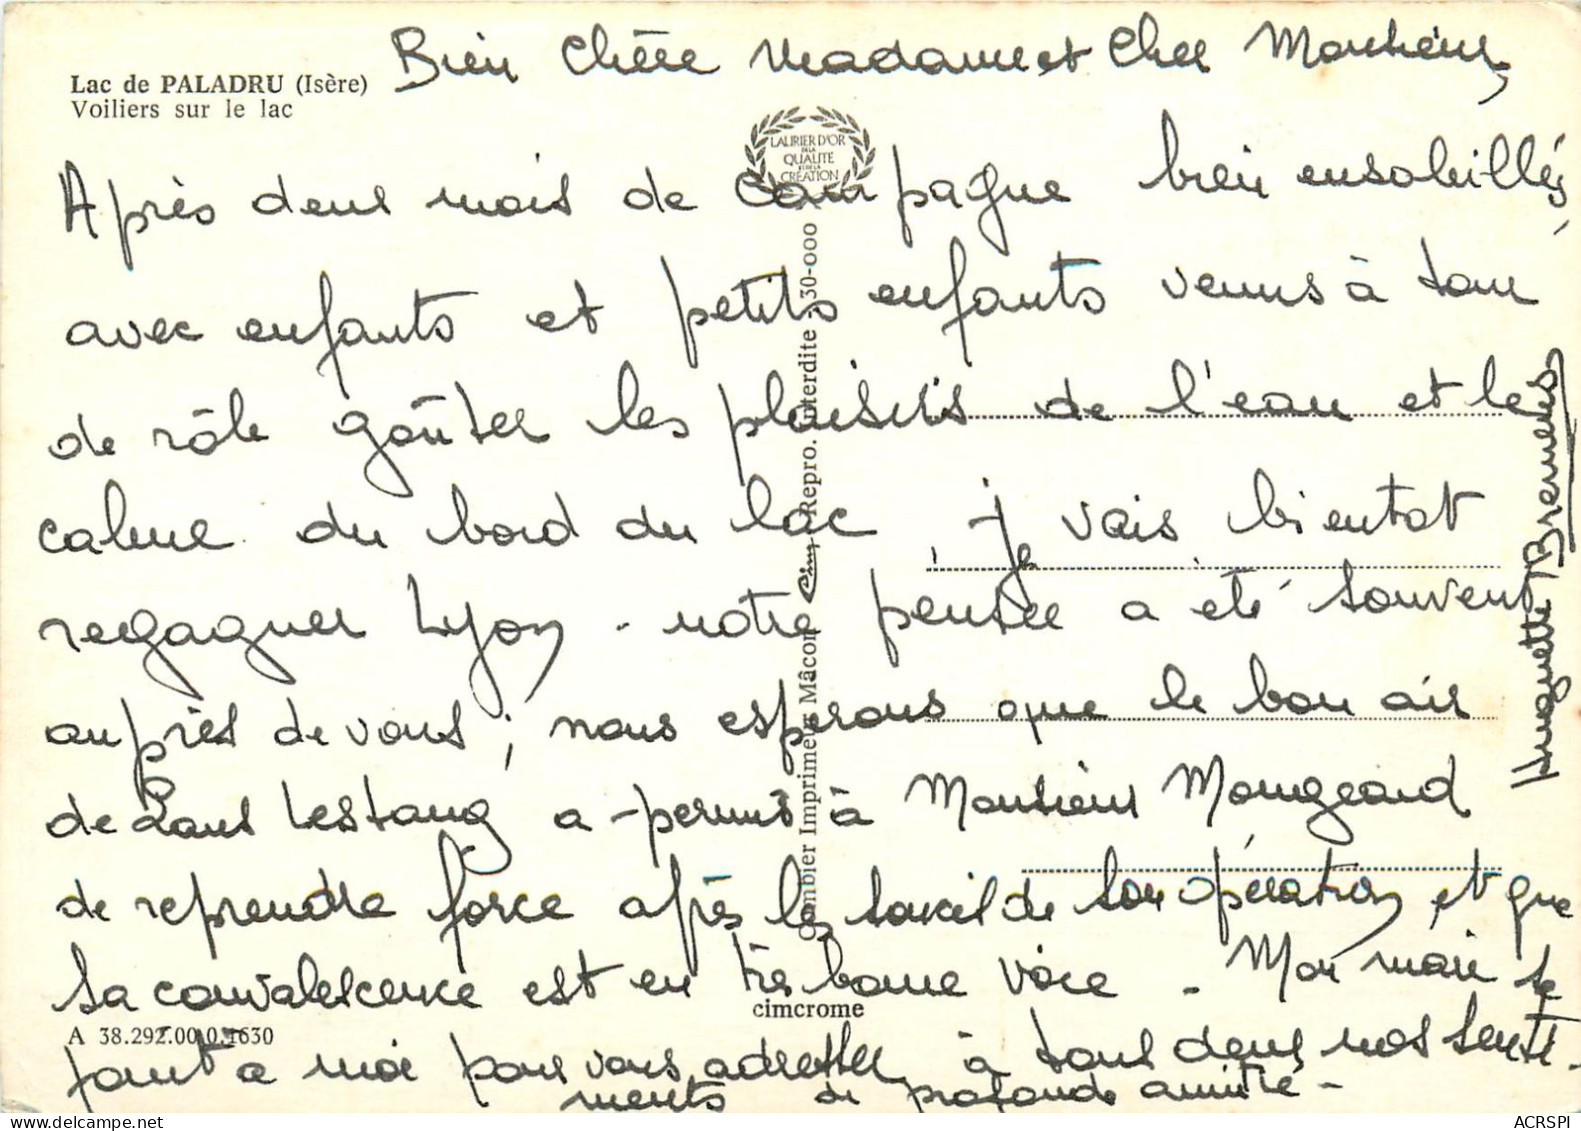 Bien Chère Madame et Cher Monsieur,
Lac de PALADRU (Isère)
Voiliers sur le lac
LAURIER D'OR
DE LA
QUALITE
ET DE LA
CRÉATION
Après deux mois de campagne bien ensoleillés,
avec enfants et petits enfants venus à tour
de rôle goûter les plaisirs de l'eau et le
calme du bord du lac, je vais bientot
regagner Lyon - notre pensée a été souvent
auprès de vous ; nous esperons que le bon air
de Lans Lestang a permis à Monsieur Mougeard
de reprendre force après les soucis de son opération et que
sa convalescence est en très bonne voie - Mon mari se
joint à moi pour vous adresser à tous deux nos senti-
ments de profonde amitié -
Huguette Bremens
Combier Imprimeur Mâcon Cim Repro. interdite 30-000
cimcrome
A 38.292.00.0.1630
ACRSPI